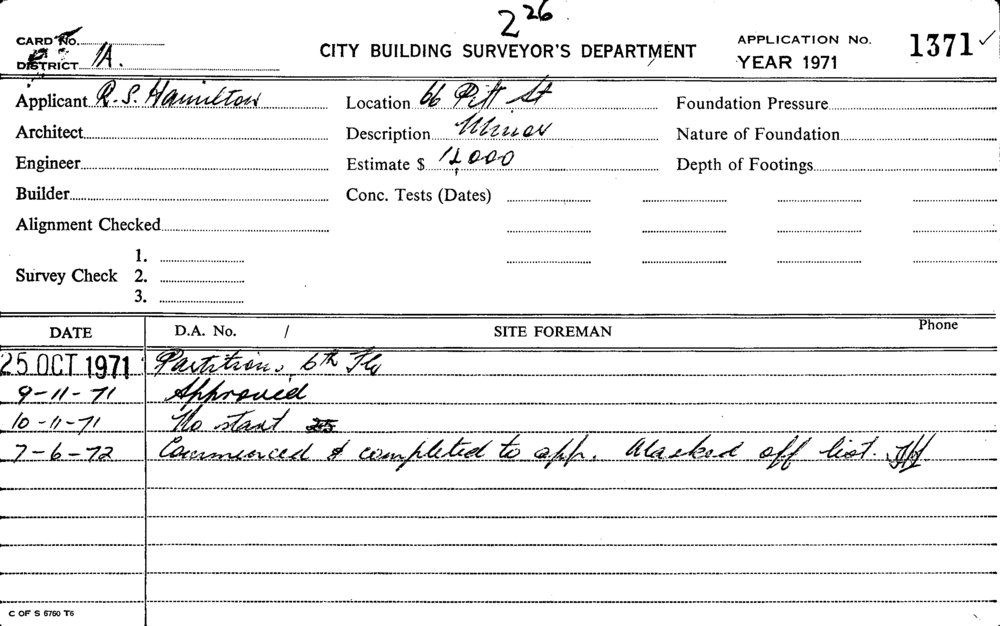 2 26
CARD No.
DISTRICT 1A.
CITY BUILDING SURVEYOR'S DEPARTMENT
APPLICATION No. 1371 ✓
YEAR 1971
Applicant R. S. Hamilton
Architect
Engineer
Builder
Alignment Checked
Survey Check
1.
2.
3.
Location 66 Pitt St
Description Minor
Estimate $ 12,000
Conc. Tests (Dates)
Foundation Pressure
Nature of Foundation
Depth of Footings
DATE D.A. No. / SITE FOREMAN Phone
25 OCT 1971 Partitions, 6th Flr
9-11-71 Approved
10-11-71 No start
7-6-72 Commenced & completed to app. Marked off list.
C OF S 5760 T6